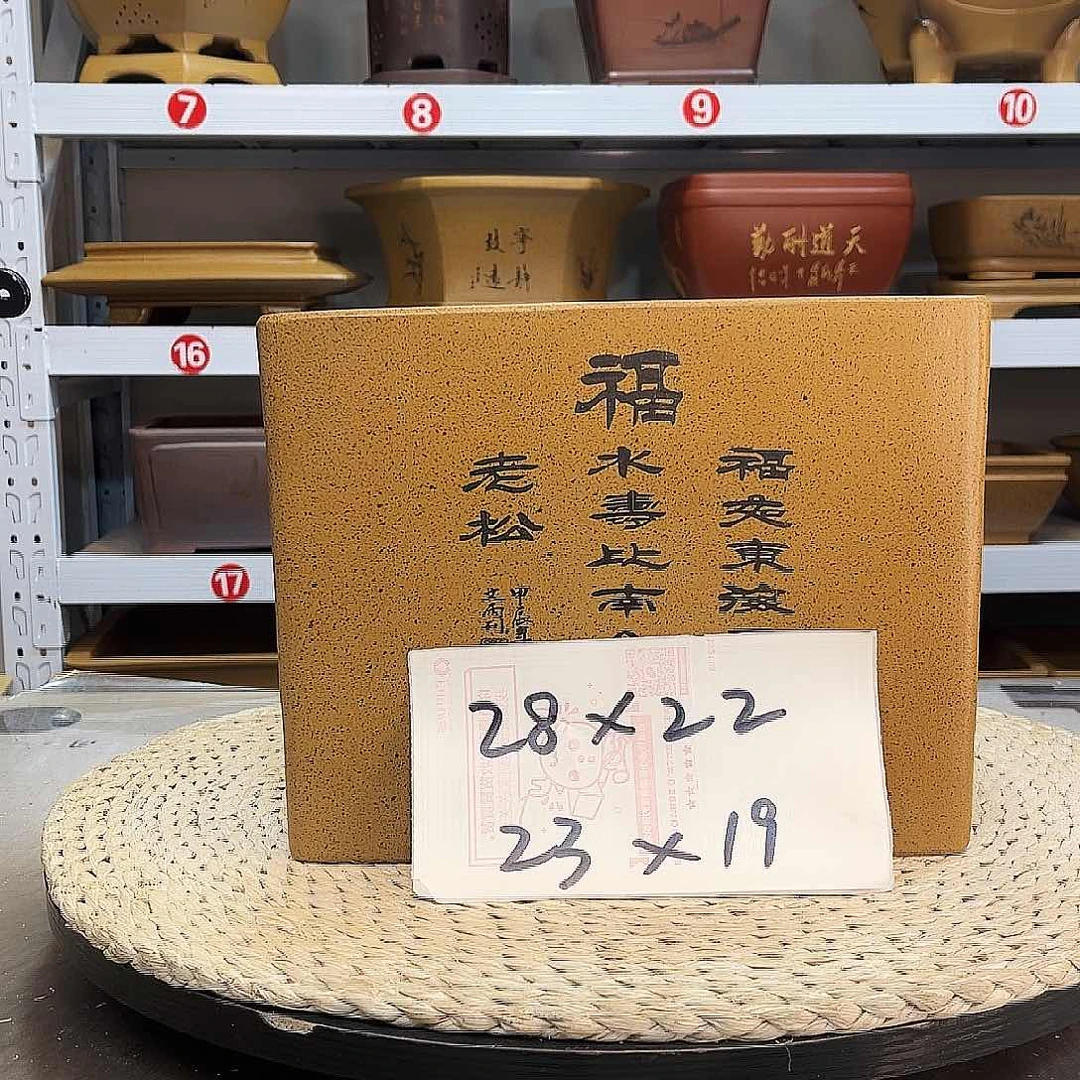 7
8
9
10
寧靜
致遠
天道酬勤
16
17
福
福如東海
水壽比南
老松
28×22
23×19